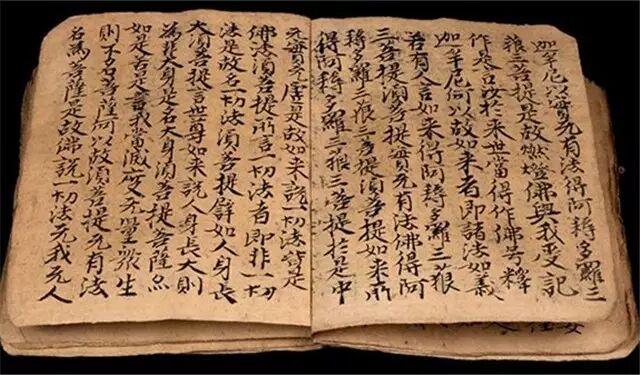 迦牟尼以實无有法得阿耨多羅三
藐三菩提是故燃燈佛與我受記
作是言汝於来世當得作佛号釋
迦牟尼何以故如来者即諸法如義
若有人言如来得阿耨多羅三藐
三菩提須菩提實无有法佛得阿
耨多羅三藐三菩提須菩提如来所
得阿耨多羅三藐三菩提於是中
无實无虛是故如来說一切法皆是
佛法須菩提所言一切法者即非一切
法是故名一切法須菩提譬如人身長
大須菩提言世尊如来說人身長大則
為非大身是名大身須菩提菩薩亦
如是若是言我當滅度无量衆生
則不名菩薩何以故須菩提无有法
名為菩薩是故佛說一切法无我无人